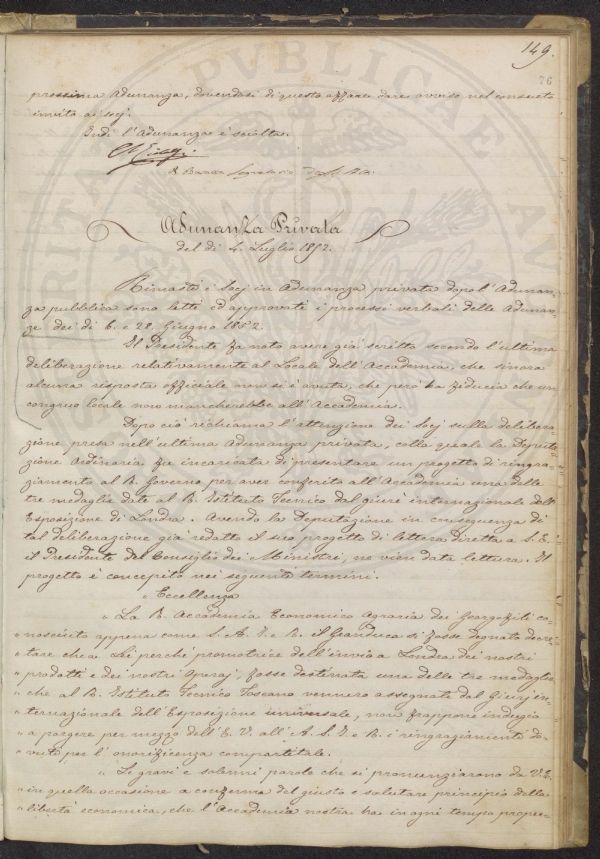 149.
76
prossima Adunanza, dovendosi di questo affare dare avviso nel consueto
invito ai socj.
Indi l'Adunanza è sciolta.
Adunanza Privata
del dì 4. Luglio 1852.
Rimasti i Socj in Adunanza privata dopo l'Adunan-
za pubblica sono letti ed approvati i processi verbali delle Adunan-
ze dei dì 6. e 28. Giugno 1852.
Il Presidente fa noto avere già scritto secondo l'ultima
deliberazione relativamente al Locale dell'Accademia, che sinora
alcuna risposta officiale non si è avuta, che però ha fiducia che un
congruo locale non mancherebbe all'Accademia.
Dopo ciò richiama l'attenzione dei Socj sulla delibera-
zione presa nell'ultima Adunanza privata, colla quale la Deputa-
zione Ordinaria fu incaricata di presentare un progetto di ringra-
ziamento al R. Governo per aver conferito all'Accademia una delle
tre medaglie date al R. Istituto Tecnico dal giurì internazionale dell'
Esposizione di Londra. Avendo la Deputazione in conseguenza di
tal deliberazione già redatto il suo progetto di lettera diretta a S. E.
il Presidente del Consiglio dei Ministri, ne vien data lettura. Il
progetto è concepito nei seguenti termini.
" Eccellenza
" La R. Accademia Economico Agraria dei Georgofili co-
" nosciuto appena come S. A. I. e R. il Granduca si fosse degnato decre-
" tare che a Lei perché promotrice dell'invio a Londra dei nostri
" prodotti e dei nostri operaj, fosse destinata una delle tre medaglie
" che al R. Istituto Tecnico Toscano vennero assegnate dal Giurj in-
" ternazionale dell'Esposizione universale, non frappone indugio
" a porgere per mezzo dell'E. V. all'A. S. I. e R. i ringraziamenti do-
" vuti per l'onorificenza compartitale.
" Le gravi e solenni parole che si pronunziarono da V. E.
" in quella occasione a conferma del giusto e salutare principio della
" libertà economica, che l'Accademia nostra ha in ogni tempo propu-